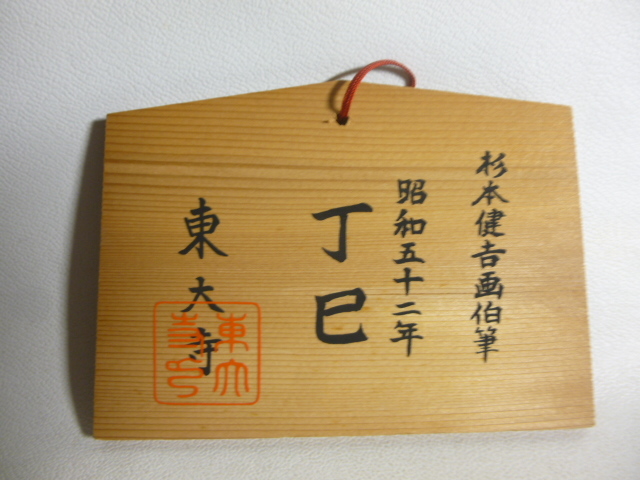 杉本健吉画伯筆
昭和五十二年
丁巳
東大寺
東大寺印